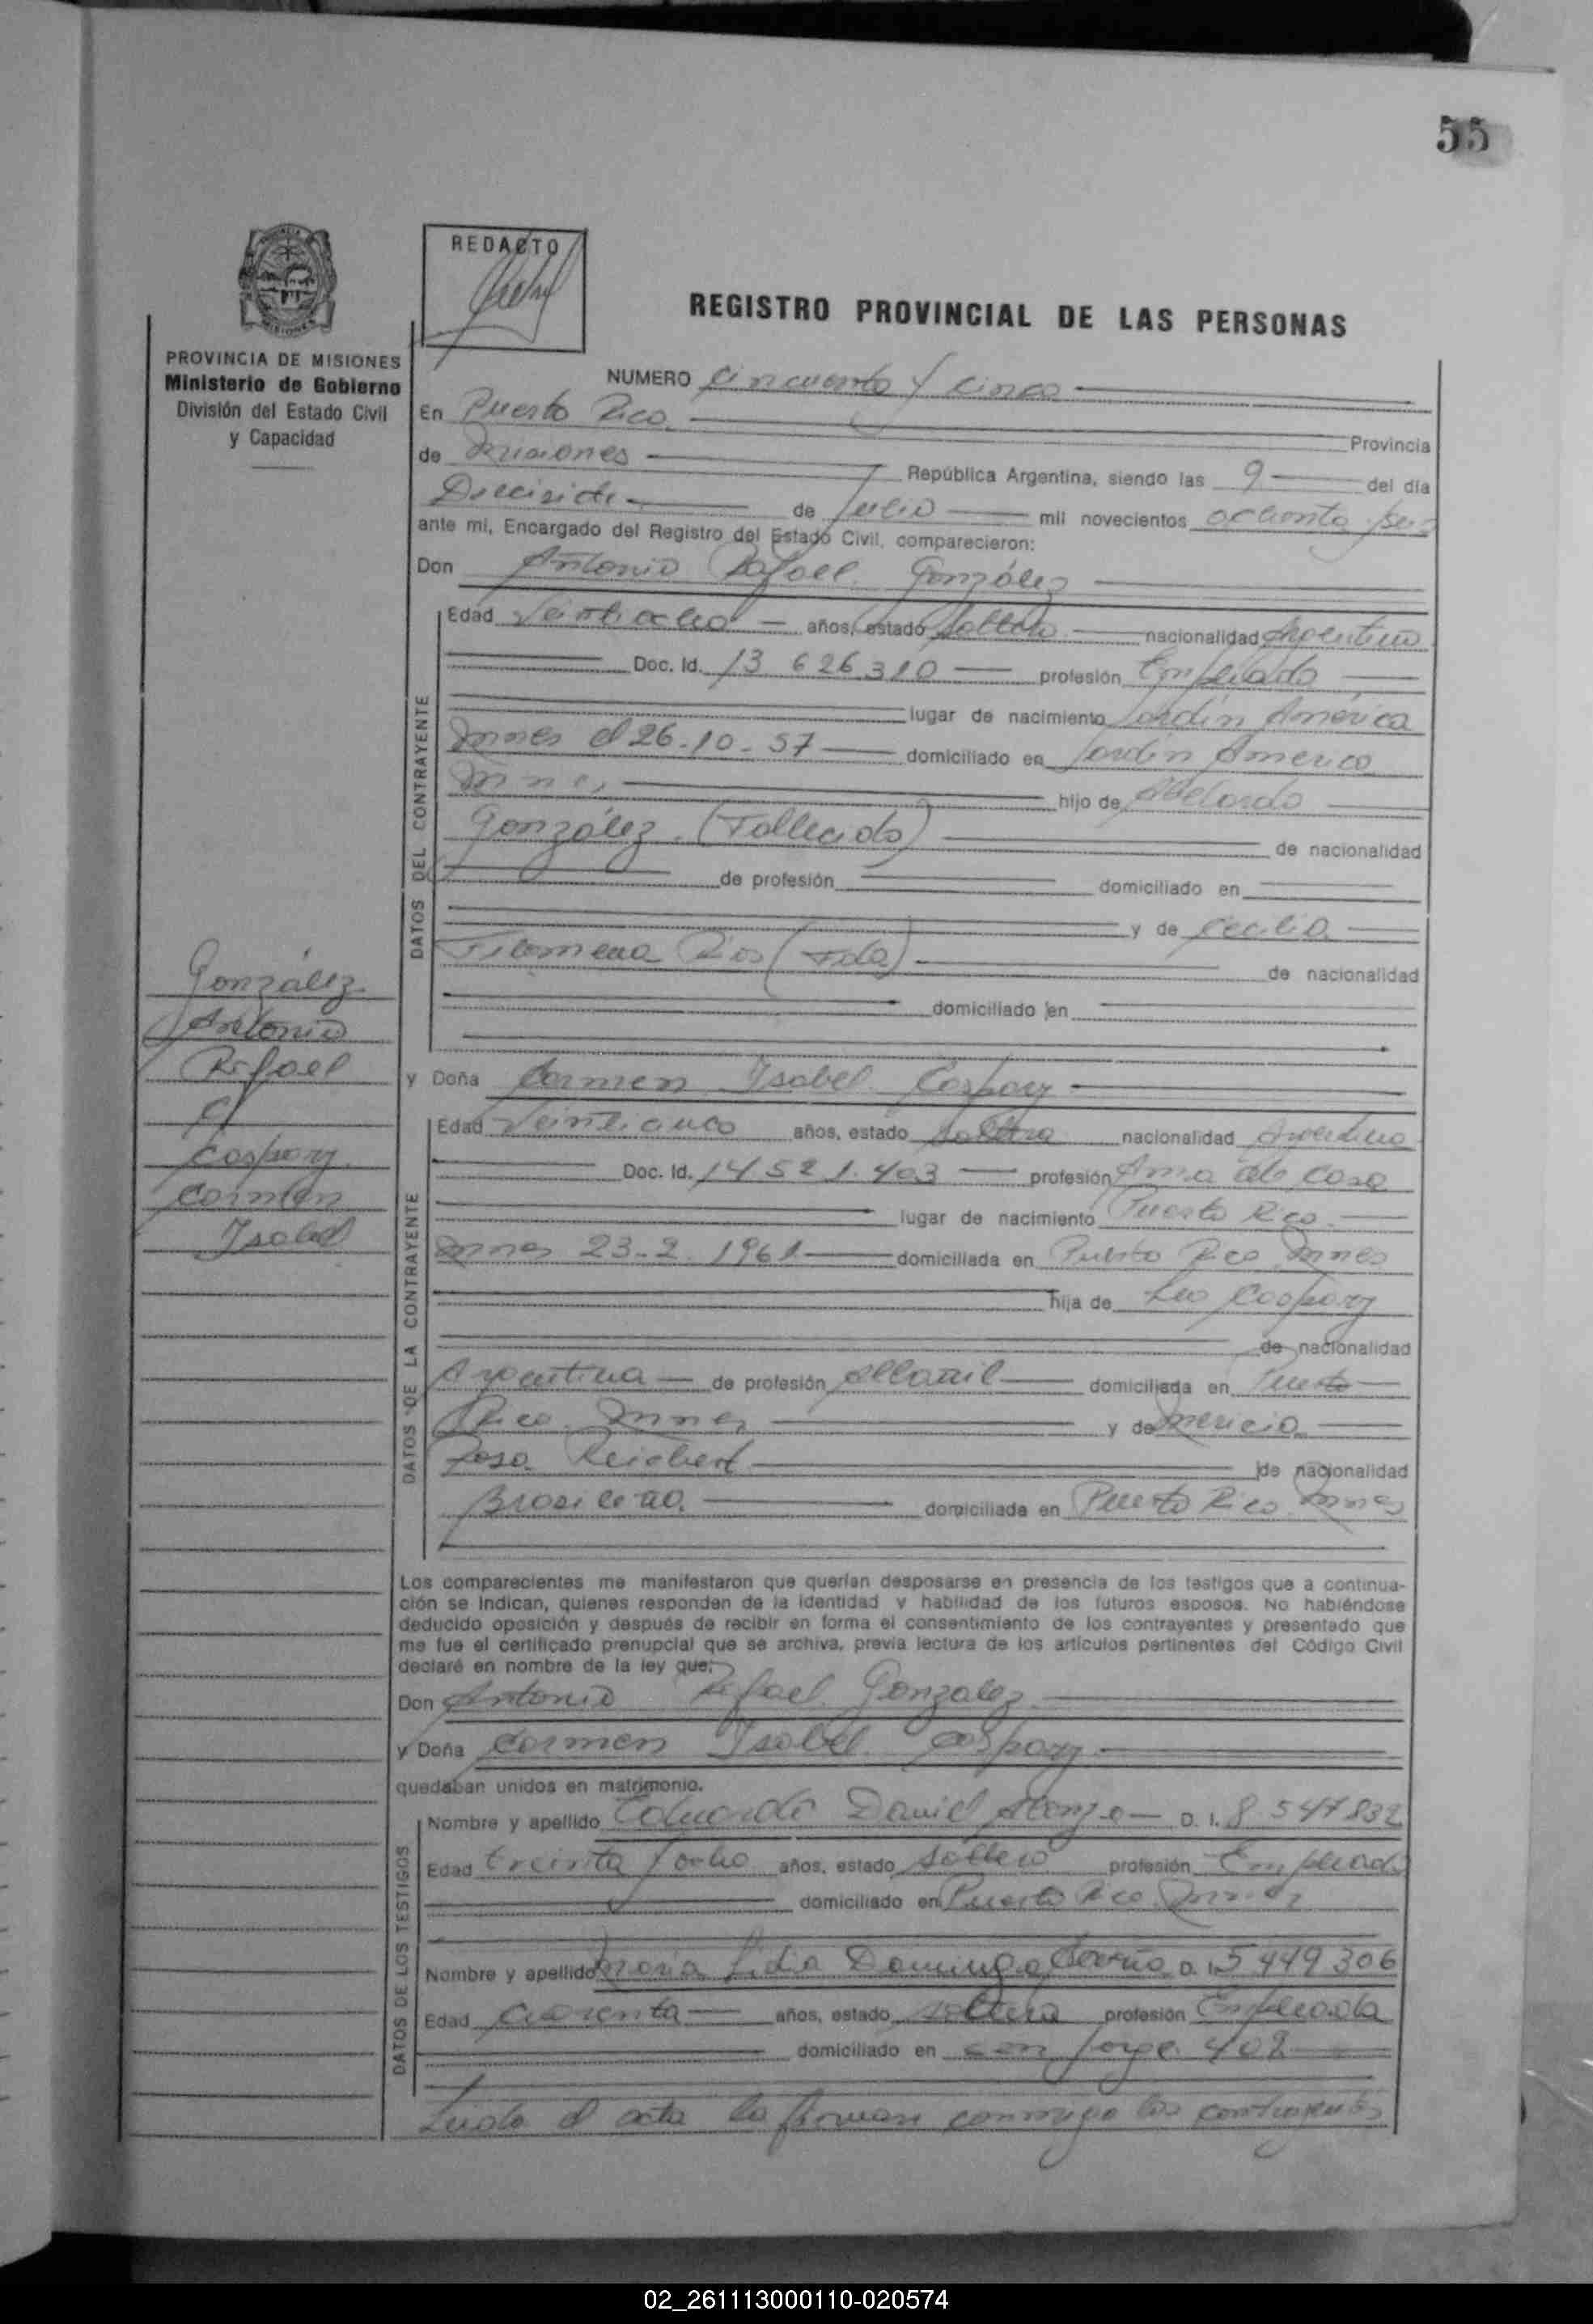 55
REDACTO
REGISTRO PROVINCIAL DE LAS PERSONAS
PROVINCIA DE MISIONES
Ministerio de Gobierno
División del Estado Civil
y Capacidad
NUMERO cincuenta y cinco
En Puerto Rico
Provincia
de Misiones República Argentina, siendo las 9 del día
Diecisiete de Julio mil novecientos ochenta y seis
ante mi, Encargado del Registro del Estado Civil, comparecieron:
Don Antonio Rafael González
DATOS DEL CONTRAYENTE
Edad Veintiocho años, estado soltero nacionalidad Argentino
Doc. Id. 13 626.310 profesión Empleado
lugar de nacimiento Jardín América
Mnes el 26-10-57 domiciliado en Jardín America
Mnes hijo de Abelardo
González (Fallecido) de nacionalidad
de profesión domiciliado en
y de Cecilia
Filomena Rios (Fda) de nacionalidad
domiciliado en
González
Antonio
Rafael
c/
Caspary
Carmen
Isabel
y Doña Carmen Isabel Caspary
DATOS DE LA CONTRAYENTE
Edad Veinticinco años, estado soltera nacionalidad Argentina
Doc. Id. 14 521.403 profesión Ama de Casa
lugar de nacimiento Puerto Rico
Mnes 23-2-1961 domiciliada en Puerto Rico Mnes
hija de Leo Caspary
de nacionalidad
Argentina de profesión albañil domiciliada en Puerto
Rico Mnes y de Mericia
Rosa Reichert de nacionalidad
Brasileña domiciliada en Puerto Rico Mnes
Los comparecientes me manifestaron que querían desposarse en presencia de los testigos que a continua-
ción se indican, quienes responden de la identidad y habilidad de los futuros esposos. No habiéndose
deducido oposición y después de recibir en forma el consentimiento de los contrayentes y presentado que
me fue el certificado prenupcial que se archiva, previa lectura de los artículos pertinentes del Código Civil
declaré en nombre de la ley que:
Don Antonio Rafael Gonzalez
y Doña Carmen Isabel Caspary
quedaban unidos en matrimonio.
DATOS DE LOS TESTIGOS
Nombre y apellido Eduardo David D. I. 8.547832
Edad treinta y ocho años, estado soltero profesión Empleado
domiciliado en Puerto Rico Mnes
Nombre y apellido Maria Lidia Dominga D. I. 5 449 306
Edad cuarenta años, estado soltera profesión Empleada
domiciliado en San Jorge 408
Leida el acta la firman conmigo los contrayentes
02_261113000110-020574